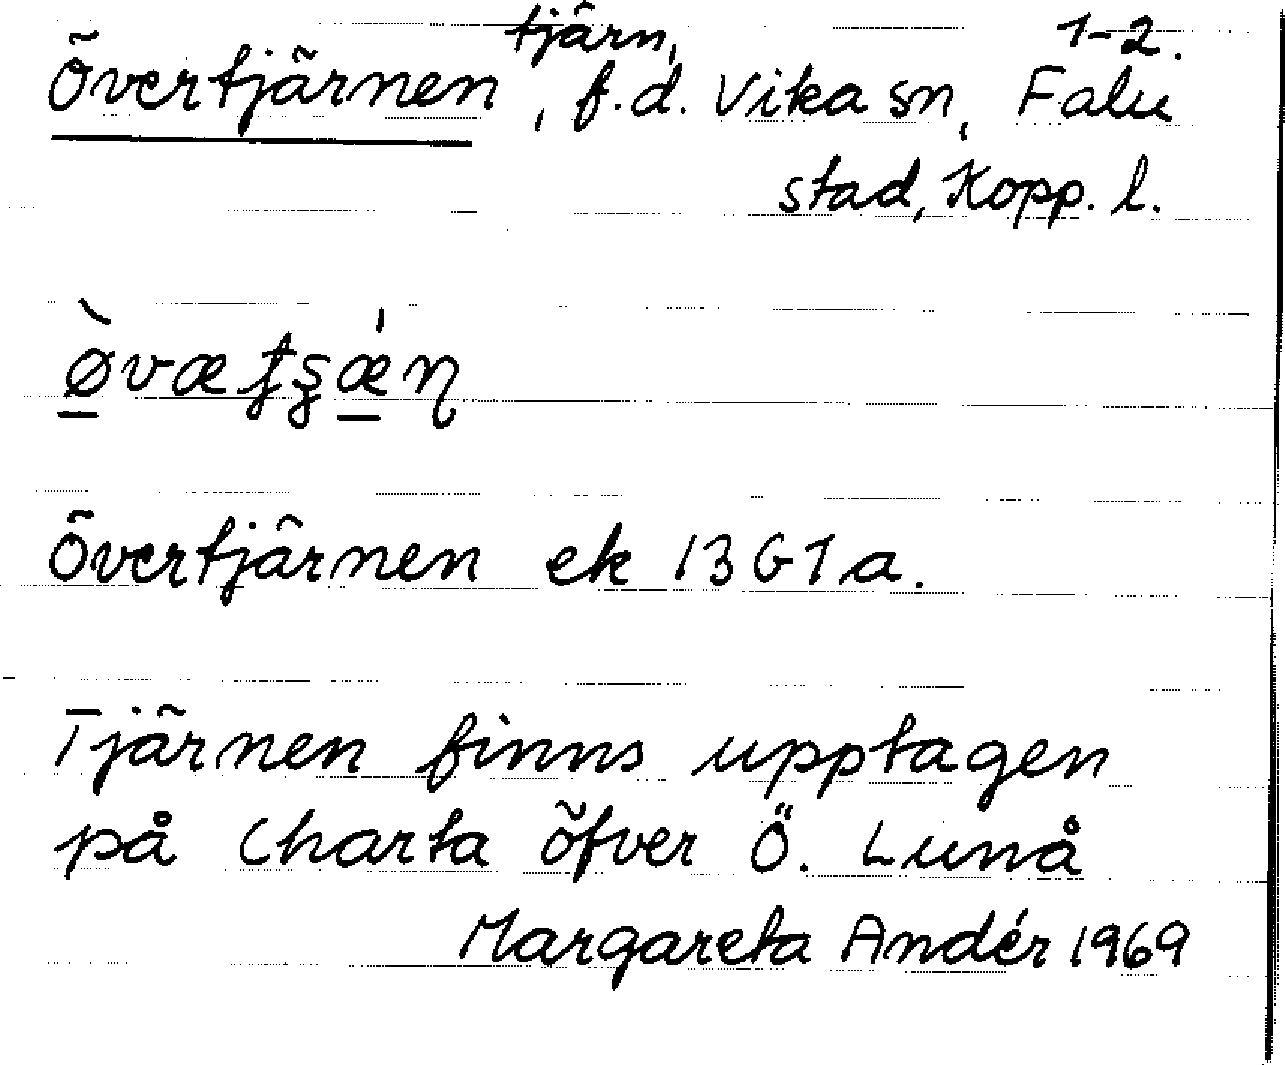 Övertjärnen, tjärn, f.d. Vika sn, Falu 1-2.
stad, Kopp. l.
ø̀væʈʂǽɳ
Övertjärnen ek 13G1a.
Tjärnen finns upptagen
på Charta öfver Ö. Lunå
Margareta Andér 1969